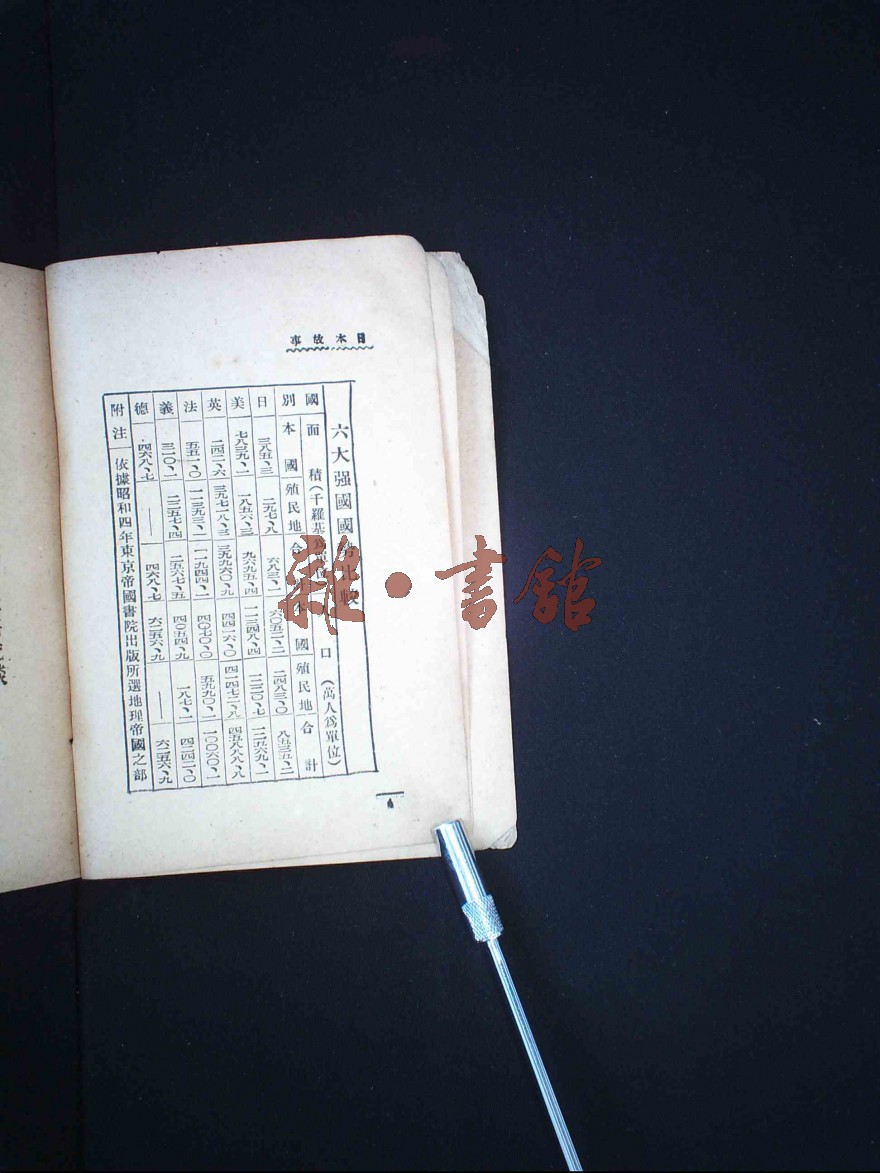 日本故事
六大强國國勢比較
國別 面積(千羅基爲單位) 口(萬人爲單位)
本國 殖民地 合 本國 殖民地 合計
日 三八五、三 二九七、八 六八三、一 六〇五二、二 二四八三、〇 八五三五、二
美 七八三九、一 一八五六、三 九六九五、四 一一三四八、四 一二二〇、七 一二五六九、一
英 二四二、六 三九七一八、三 三九九六〇、九 四四二六、〇 四一四七二、八 四五八八八、八
法 五五一、〇 一一三九三、一 一一九四四、一 四〇七〇、〇 五九九〇、一 一〇〇六〇、一
義 三一〇、一 二二五七、四 二五六七、五 四〇五四、九 一八七、一 四二四二、〇
德 四六八、七 — 四六八、七 六二五六、九 — 六二五六、九
附注 依據昭和四年東京帝國書院出版所選地理帝國之部
雜·書館